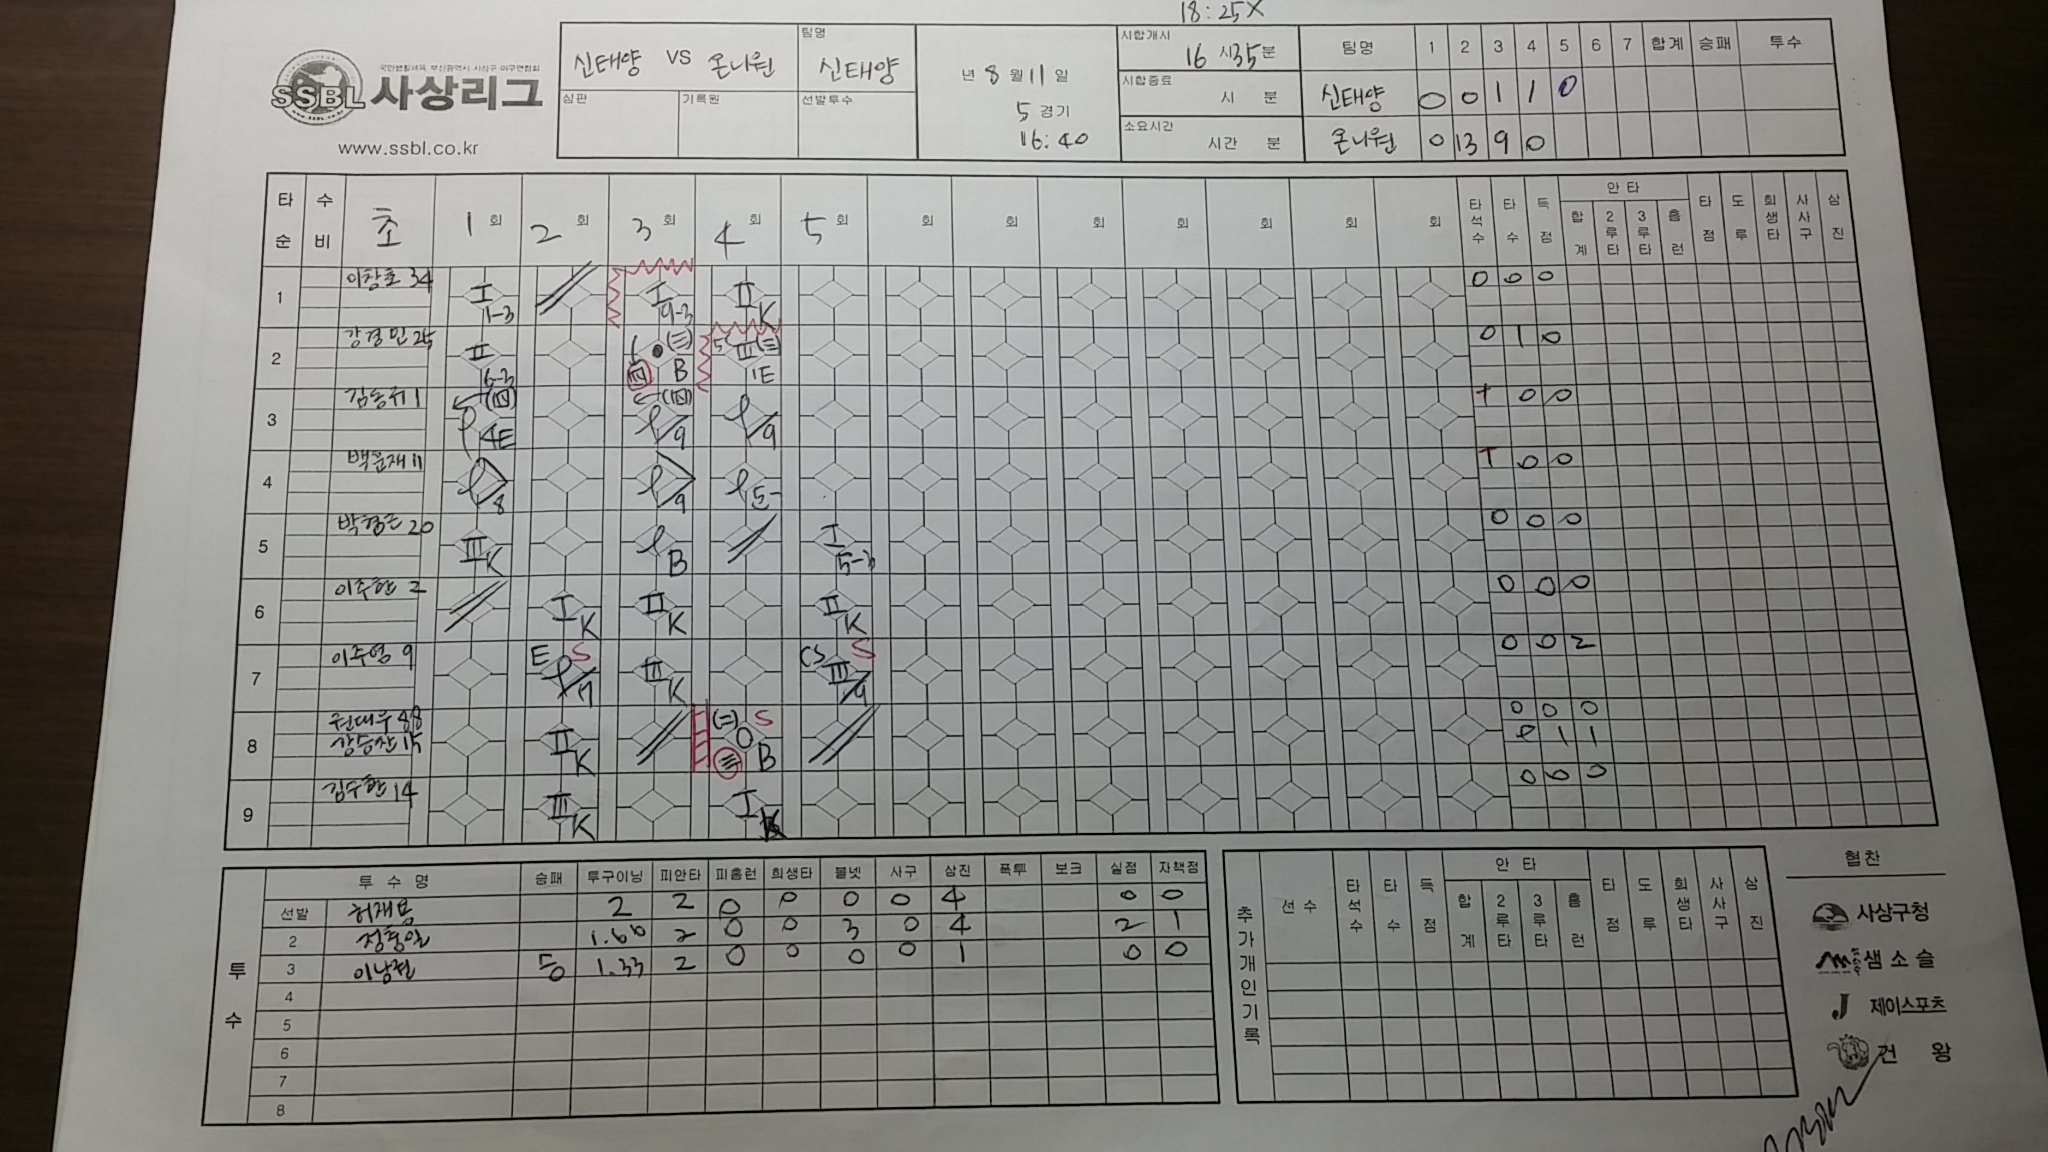 18:25X
국민생활체육 부산광역시 사상구 야구연합회
SSBL 사상리그
www.ssbl.co.kr
신태양 VS 온나원
팀명
신태양
심판
기록원
선발투수
년 8 월 11 일
5 경기
16:40
시합개시 16 시 35 분
시합종료 시 분
소요시간 시간 분
팀명 1 2 3 4 5 6 7 합계 승패 투수
신태양 0 0 1 1 0
온나원 0 13 9 0
타순 수비 초 1 회 2 회 3 회 4 회 5 회 회 회 회 회 회 회 회 타석수 타수 득점 안타 합계 2루타 3루타 홈런 타점 도루 희생타 사사구 삼진
1 이창호 34 I 1-3 I 9-3 II K 0 0 0
2 강경민 25 II 6-3 B III 1E 0 1 0
3 1 4E 9 9 0 0
4 백운재 11 8 9 0 0
5 20 III K B I 5-3 0 0 0
6 이주한 2 I K II K II K 0 0 0
7 이주영 9 E S 7 III K CS S III 9 0 0 2
8 권대우 88 II K S B 0 0 0
강승찬 15 1 1
9 김수환 14 III K I K 0 0 0
투수 투수명 승패 투구이닝 피안타 피홈런 희생타 볼넷 사구 삼진 폭투 보크 실점 자책점
선발 허재봉 2 2 0 0 0 0 4 0 0
2 1.66 2 0 0 3 0 4 2 1
3 이남철 1.33 2 0 0 0 0 1 0 0
4
5
6
7
8
추가개인기록 선수 타석수 타수 득점 안타 합계 2루타 3루타 홈런 타점 도루 희생타 사사구 삼진
협찬
사상구청
샘소슬
J 제이스포츠
건왕